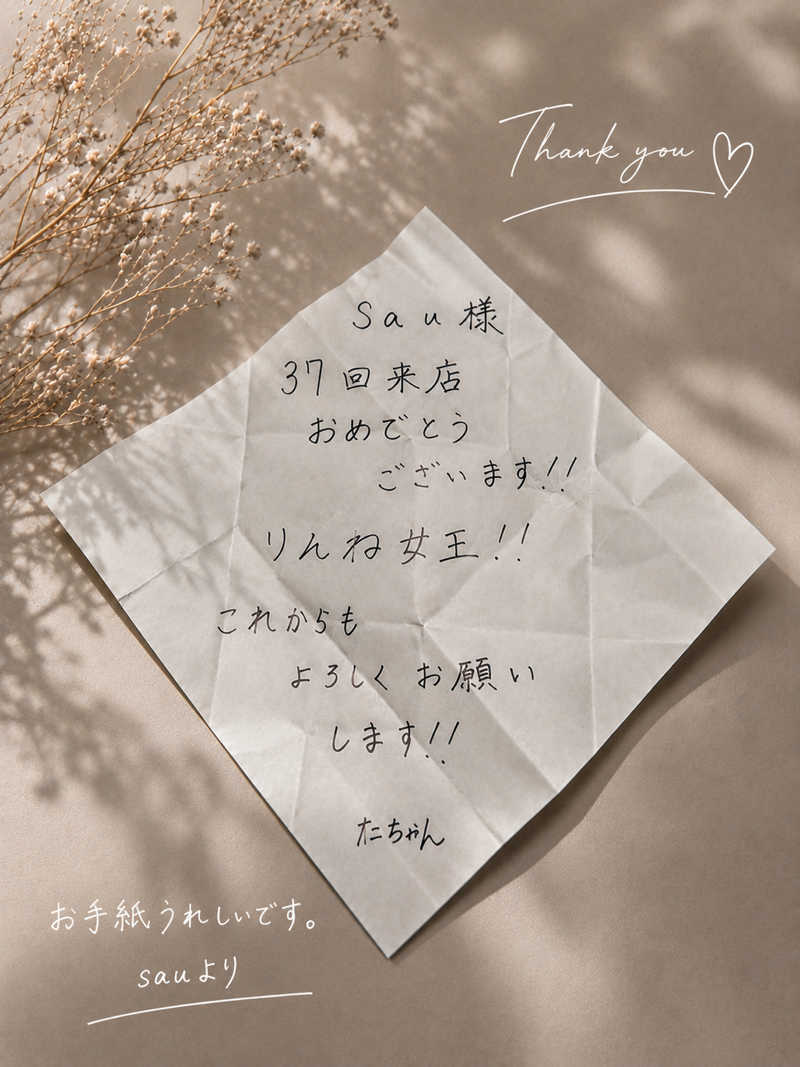 Thank you
Sau様
37回来店
おめでとう
ございます!!
りんね女王!!
これからも
よろしくお願い
します!!
たちゃん
お手紙うれしいです。
sauより